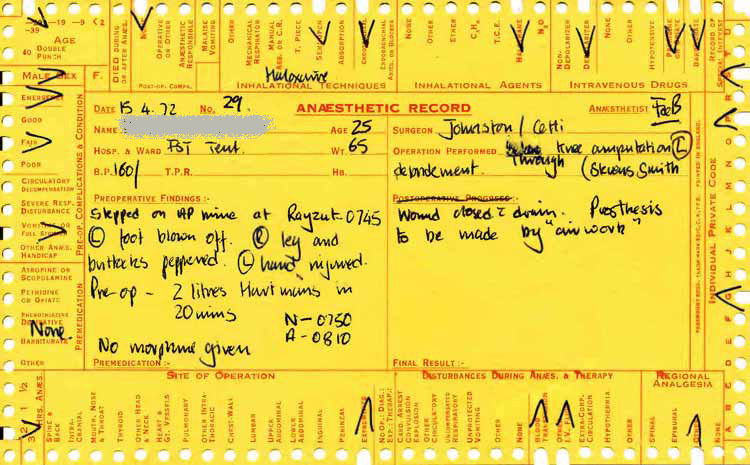 -39 -19 -9 < 2
40 DOUBLE PUNCH
AGE
MALE SEX F.
DIED DURING OR AFTER ANÆS.
NONE
OPERATIVE OR OTHER
ANÆSTHETIC RESPONSIBLE
MALAISE VOMITING
OTHER
POST-OP. COMPL.
MECHANICAL RESPIRATOR
MANUAL
T. PIECE
ABSORPTION
Haloxaire
INHALATIONAL TECHNIQUES
NONE
OTHER
ETHER
C₃H₆
T.C.E.
HALOTHANE
N₂O
INHALATIONAL AGENTS
NON-DEPOLARIZER
DEPOLARIZER
NONE
OTHER
HYPOTENSIVE
INTRAVENOUS DRUGS
RECORD OF SPECIAL INTEREST
DATE 15 4. 72 No. 29. ANÆSTHETIC RECORD ANÆSTHETIST
NAME AGE 25 SURGEON Johnston / Cetti
HOSP. & WARD FST Tent. WT 65 OPERATION PERFORMED through knee amputation (L)
B.P. 160/ T.P.R. HB. debridement. (Stevens Smith
PREOPERATIVE FINDINGS:- POSTOPERATIVE PROGRESS:-
Stepped on AP mine at Rayzut 0745
(L) foot blown off. (R) leg and
buttocks peppered. (L) hand injured.
Pre-op - 2 litres Hartmans in
20 mins N - 0750
A - 0810
No morphine given
PREMEDICATION:-
Wound closed c̄ drain. Prosthesis
to be made by "airwork"
FINAL RESULT:-
PRE-OP. COMPLICATIONS & CONDITION
EMERGENCY
GOOD
FAIR
POOR
CIRCULATORY DECOMPENSATION
SEVERE RESP. DISTURBANCE
VOMITING OR FULL STOMACH
OTHER ANÆS. HANDICAP
PREMEDICATION
ATROPINE OR SCOPOLAMINE
PETHIDINE OR OPIATE
PHENOTHIAZINE DERIVATIVE
None.
BARBITURATE
OTHER
INDIVIDUAL PRIVATE CODE
A B C D E F G H J K L M N O P R S T
3 2 1 ½ HRS. ANÆS.
SITE OF OPERATION
SPINE & BACK
INTRA-CRANIAL
MOUTH, NOSE & THROAT
THYROID
OTHER HEAD & NECK
HEART & GT. VESSELS
PULMONARY
OTHER INTRA-THORACIC
CHEST-WALL
LUMBAR
UPPER ABDOMINAL
LOWER ABDOMINAL
INGUINAL
PERINEAL
EXTREMITIES
NO OP.: DIAG.: E.S.: THERAP.:
DISTURBANCES DURING ANÆS. & THERAPY
CARD. ARREST
CONVULSION EXPLOSION
OTHER CIRCULATORY
UNEXPECTED RESPIRATORY
UNPROTECTED VOMITING
OTHER
NONE
BLOOD TRANSFUSION
OTHER I.V. FLUID
EXTRA-CORP. CIRCULATION
HYPOTHERMIA
OTHER
REGIONAL ANALGESIA
SPINAL
EPIDURAL
OTHER